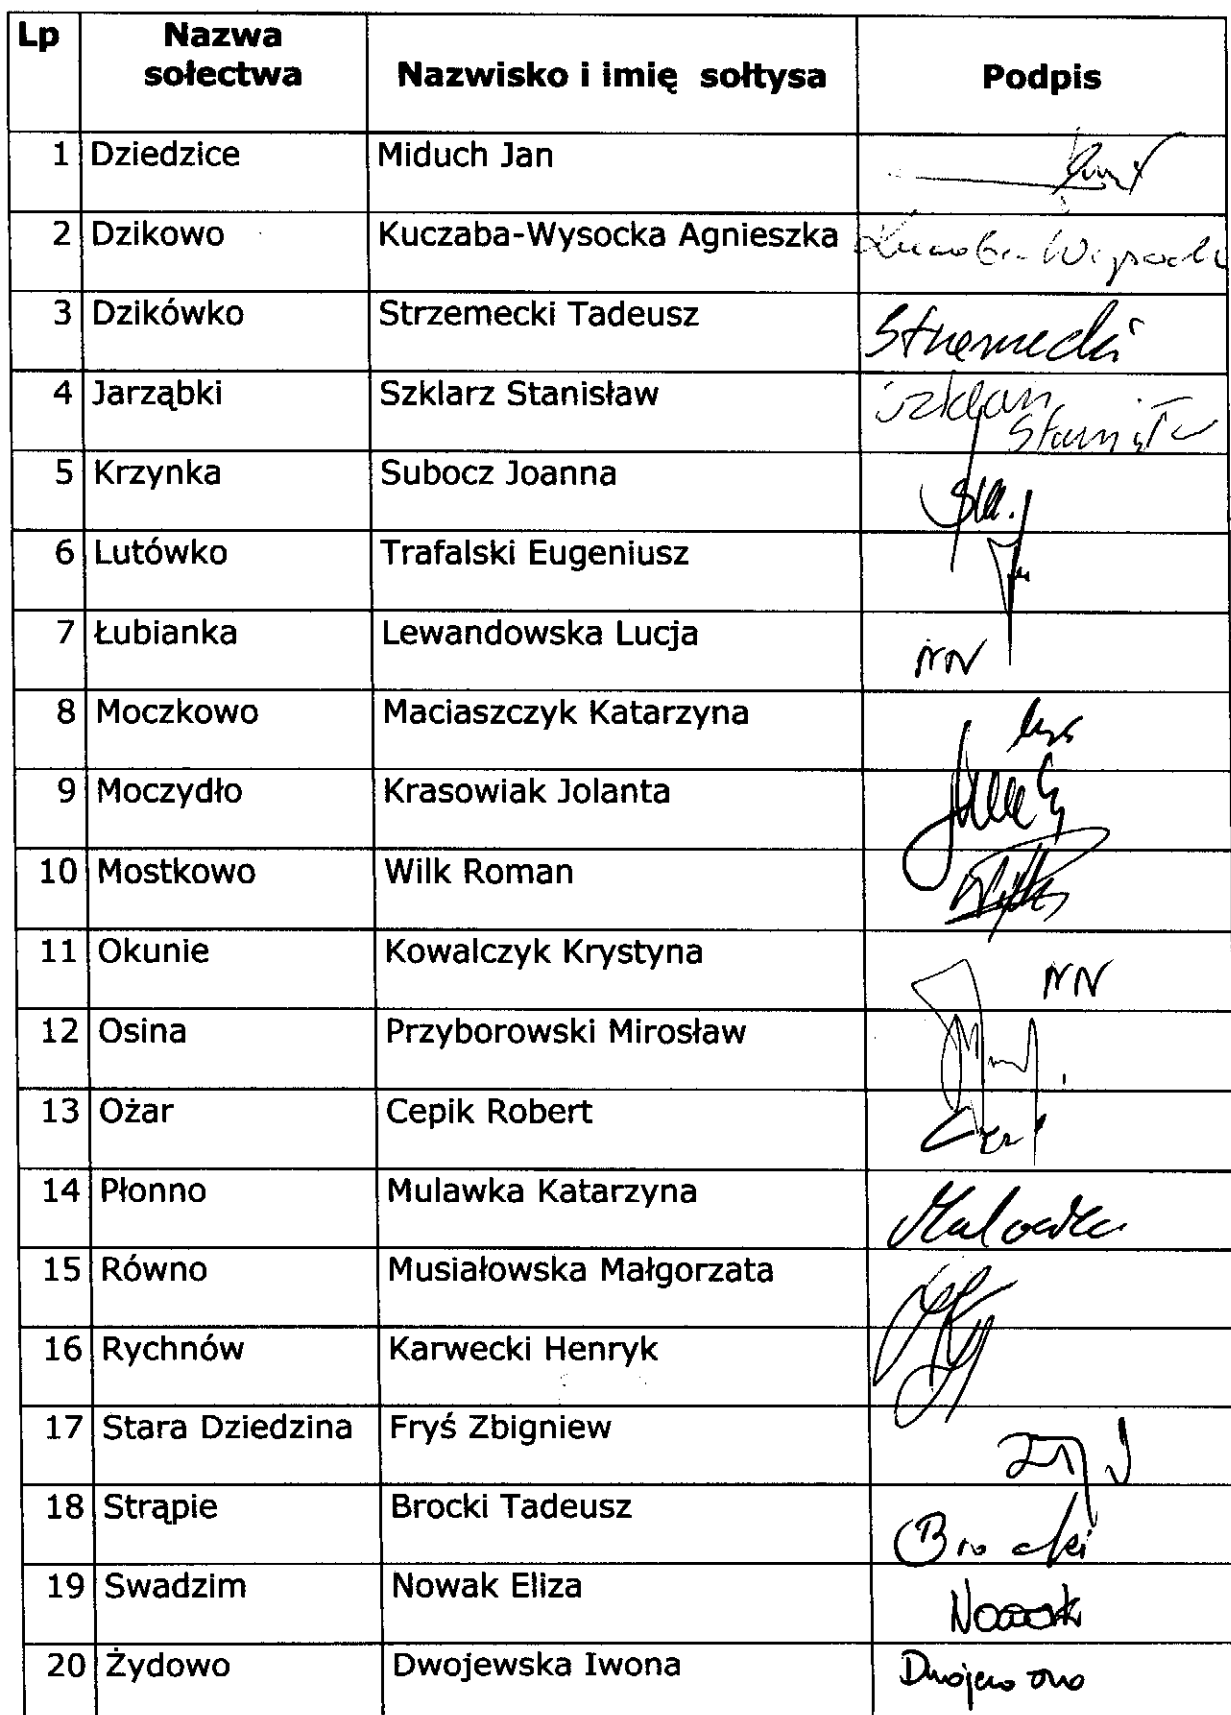 Lp Nazwa sołectwa Nazwisko i imię sołtysa Podpis
1 Dziedzice Miduch Jan
2 Dzikowo Kuczaba-Wysocka Agnieszka
3 Dzikówko Strzemecki Tadeusz Strzemecki
4 Jarząbki Szklarz Stanisław
5 Krzynka Subocz Joanna
6 Lutówko Trafalski Eugeniusz
7 Łubianka Lewandowska Lucja NN
8 Moczkowo Maciaszczyk Katarzyna
9 Moczydło Krasowiak Jolanta
10 Mostkowo Wilk Roman
11 Okunie Kowalczyk Krystyna NN
12 Osina Przyborowski Mirosław
13 Ożar Cepik Robert
14 Płonno Mulawka Katarzyna
15 Równo Musiałowska Małgorzata
16 Rychnów Karwecki Henryk
17 Stara Dziedzina Fryś Zbigniew
18 Strąpie Brocki Tadeusz Brocki
19 Swadzim Nowak Eliza Nowak
20 Żydowo Dwojewska Iwona